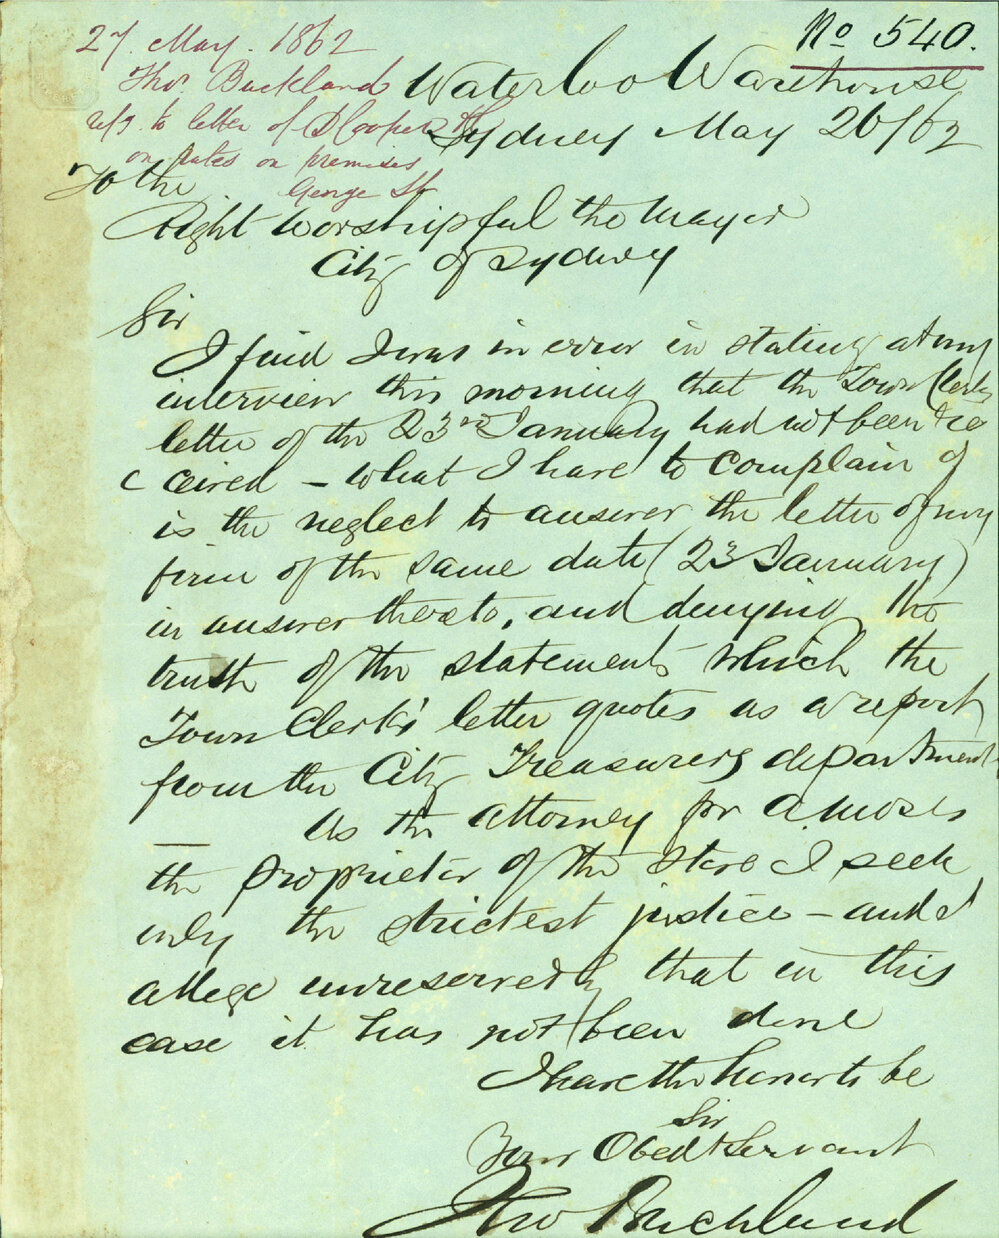 No 540.
27. May. 1862
Thos. Buckland
refg. to letter of D Cooper
on rates on premises
George St
Waterloo Warehouse
Sydney May 26/62
To the
Right Worshipful the Mayor
City of Sydney
Sir
I find I was in error in stating at my
interview this morning that the Town Clerks
letter of the 23rd January had not been re
ceived – what I have to complain of
is the neglect to answer the letter of my
firm of the same date (23 January)
in answer thereto, and denying the
truth of the statements which the
Town Clerk's letter quotes as a report
from the City Treasurers department
— As the attorney for A. Moses
the proprietor of the store I seek
only the strictest justice – and I
allege unreservedly that in this
case it has not been done
I have the honor to be
Sir
Your Obedt Servant
Tho Buckland